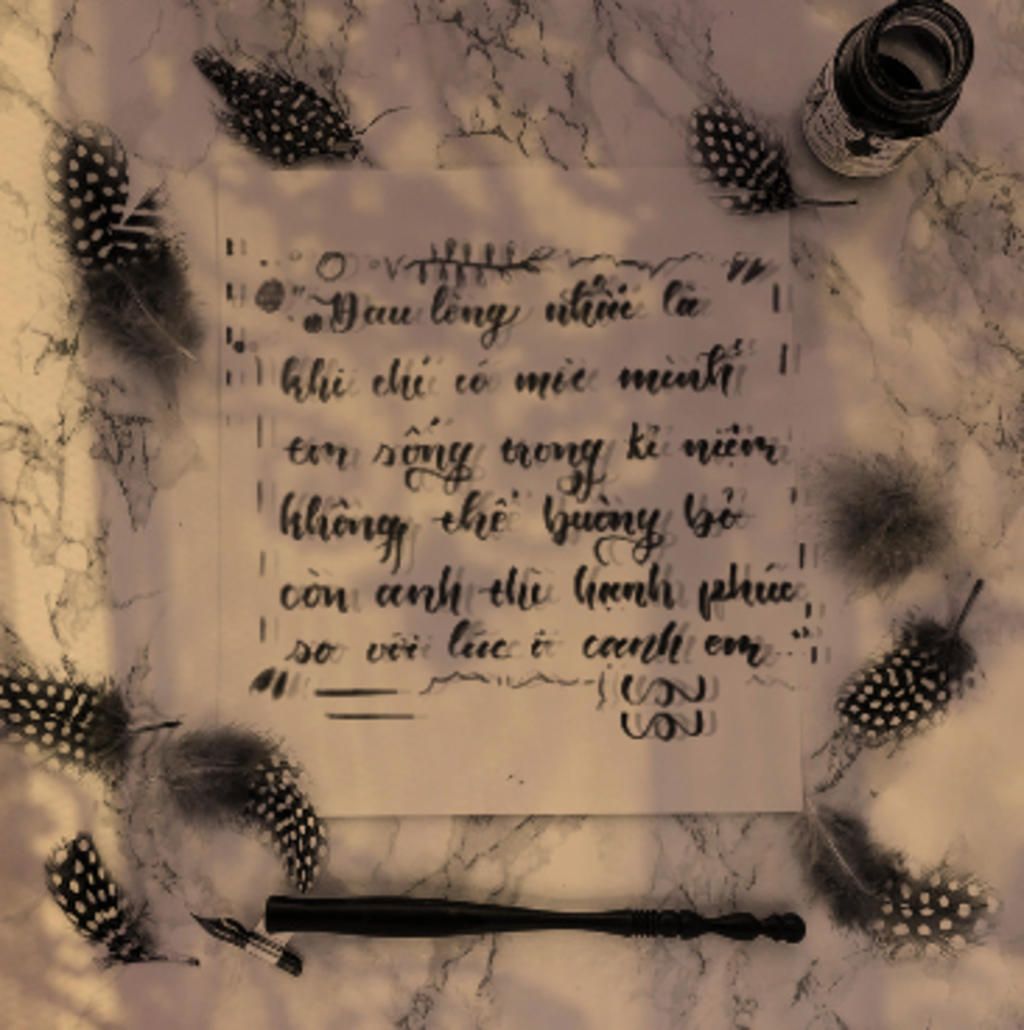 "Đau lòng nhất là
khi chỉ có một mình
em sống trong kỉ niệm
không thể buông bỏ
còn anh thì hạnh phúc
so với lúc ở cạnh em"